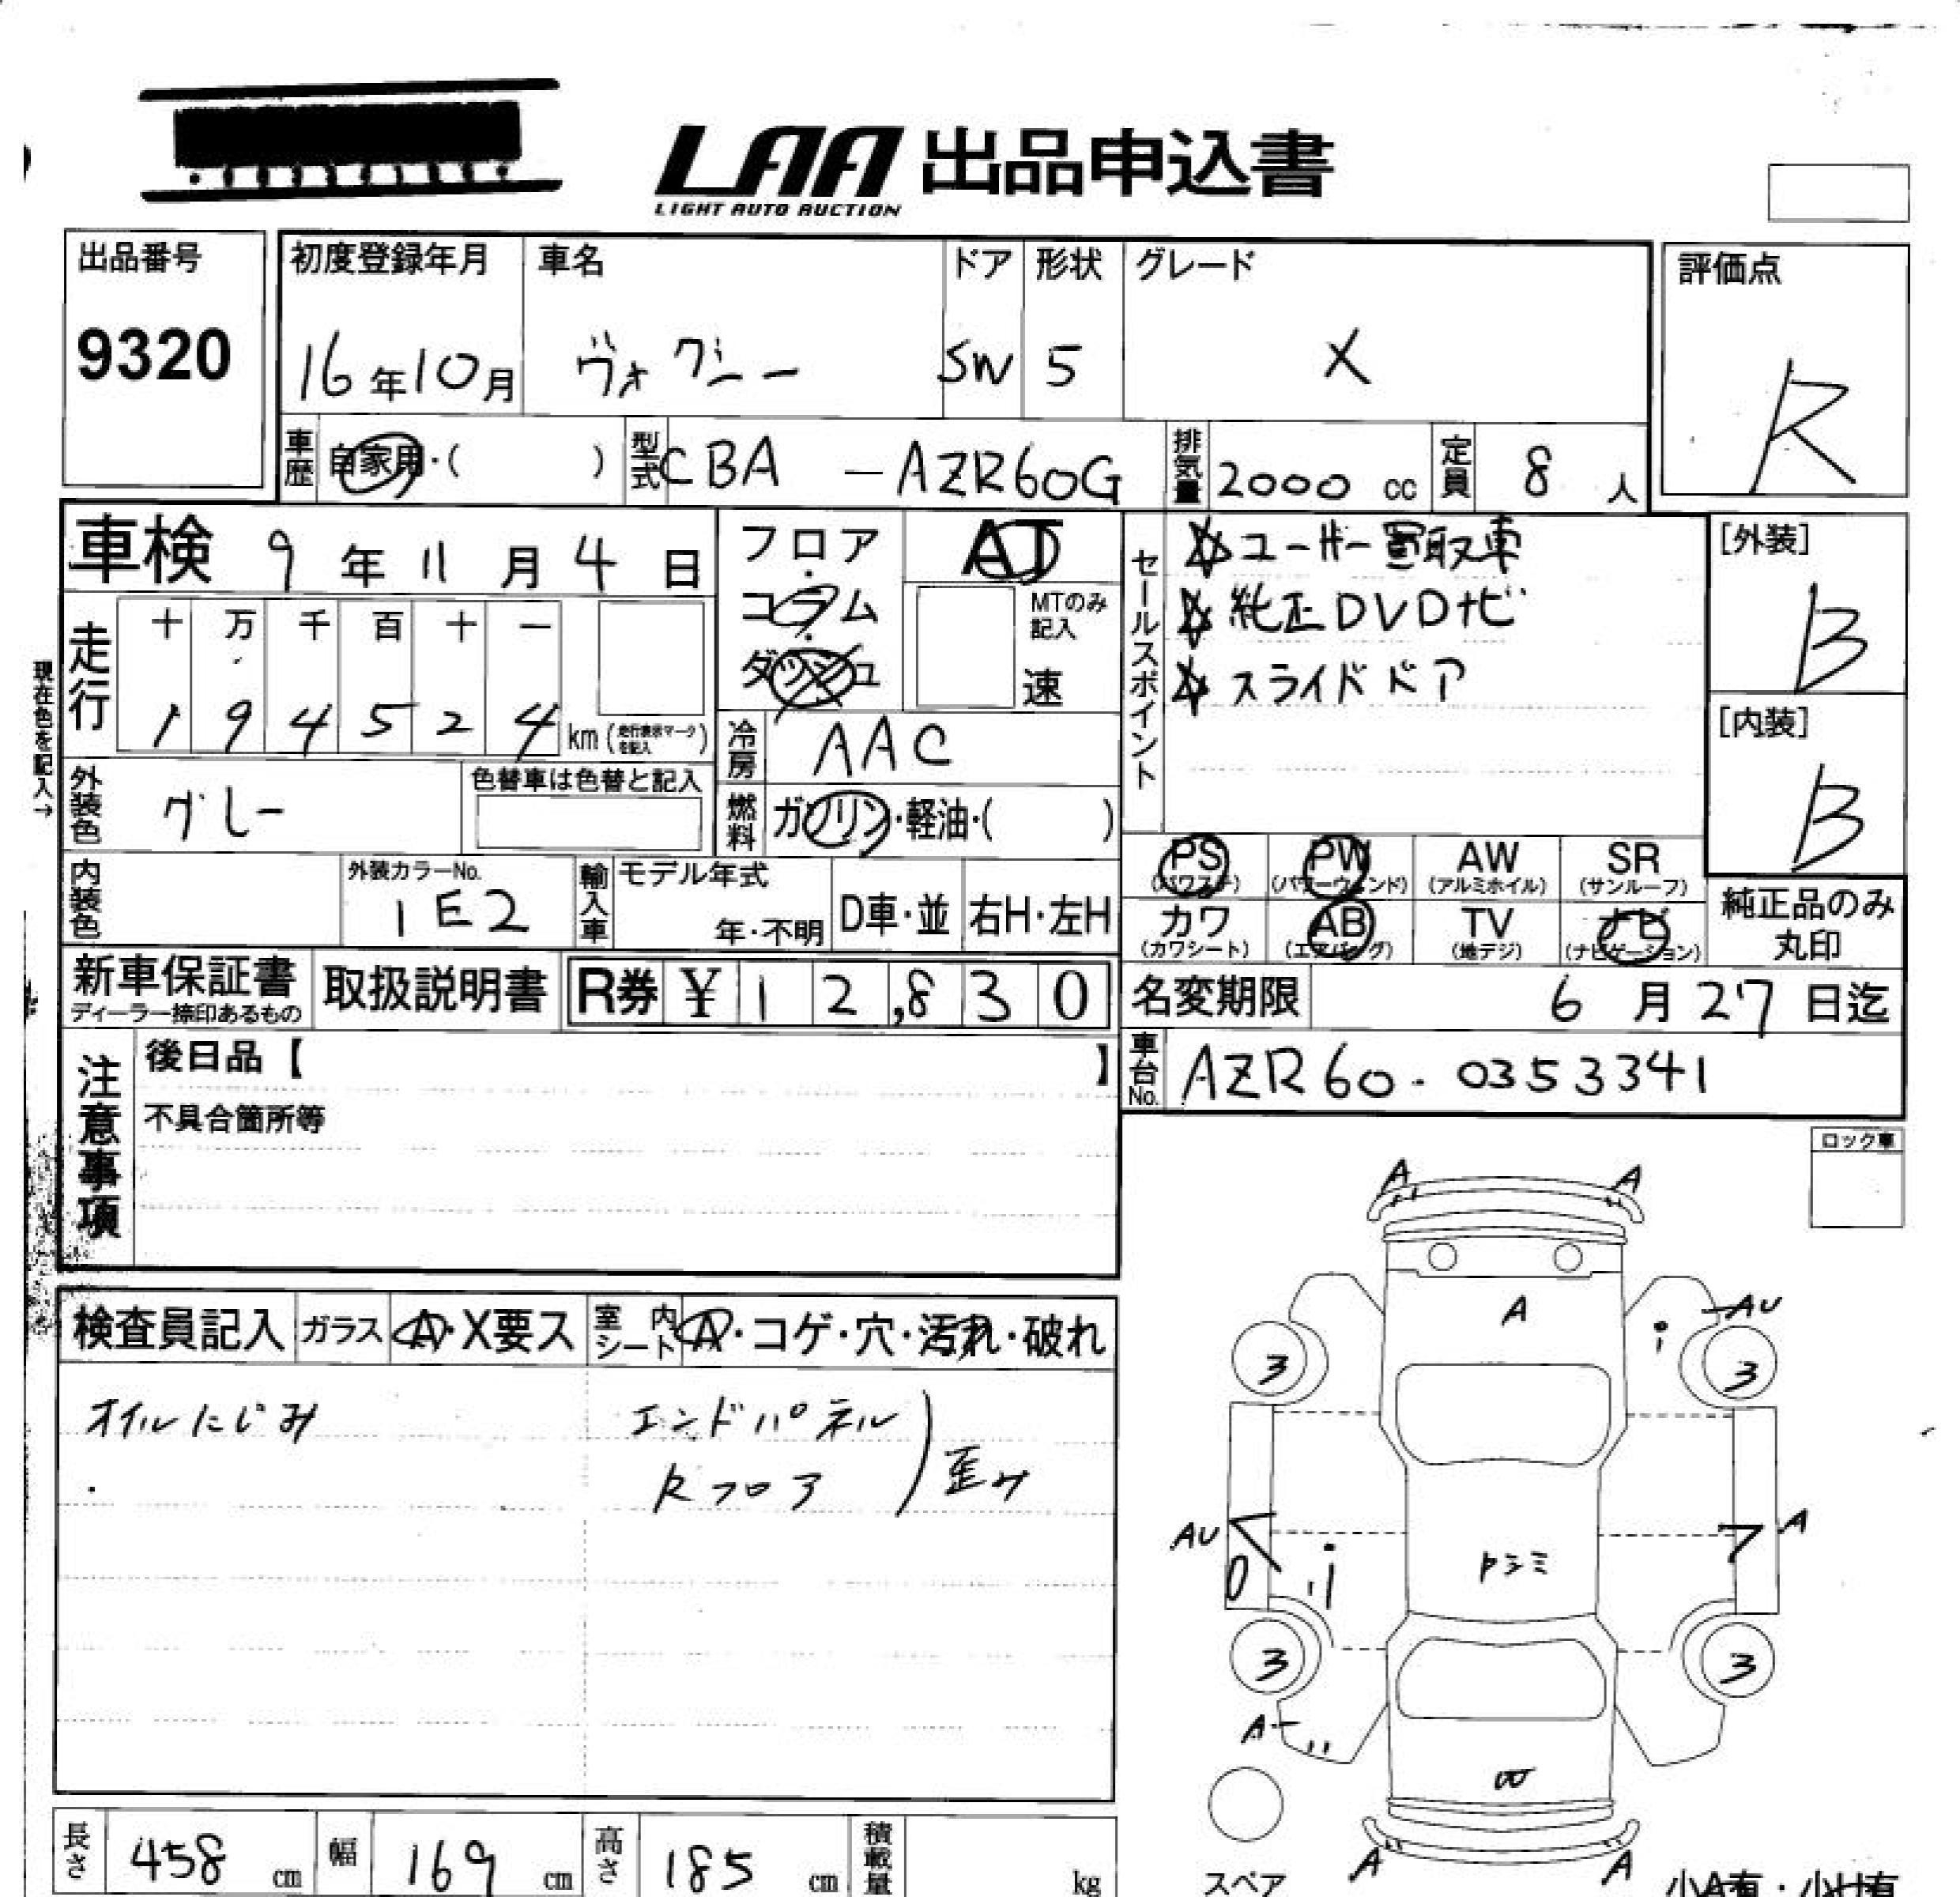 LAA 出品申込書
LIGHT AUTO AUCTION
出品番号
9320
初度登録年月
16年10月
車名
ヴォクシー
ドア
SW
形状
5
グレード
X
評価点
R
車歴
自家用・( )
型式
CBA - AZR60G
排気量
2000 cc
定員
8 人
車検 9年11月4日
フロア・コラム・ダッシュ
MTのみ記入
速
セールスポイント
☆ユーザー買取車
☆純正DVDナビ
☆スライドドア
[外装]
B
[内装]
B
現在色を記入→
走行
十 万 千 百 十 一
1 9 4 5 2 4 km (走行表示マークを記入)
冷房
AAC
外装色
グレー
色替車は色替と記入
燃料
ガソリン・軽油・( )
内装色
外装カラーNo.
1E2
輸入車
モデル年式
年・不明
D車・並
右H・左H
PS (パワステ)
PW (パワーウィンド)
AW (アルミホイル)
SR (サンルーフ)
カワ (カワシート)
AB (エアバッグ)
TV (地デジ)
ナビ (ナビゲーション)
純正品のみ丸印
新車保証書
ディーラー捺印あるもの
取扱説明書
R券 ¥ 12,830
名変期限 6月27日迄
車台No.
AZR60-0353341
注意事項
後日品【 】
不具合箇所等
ロック車
検査員記入
ガラス
A・X要ス
室内シート
A・コゲ・穴・汚れ・破れ
オイルにじみ
エンドパネル
Rフロア
歪み
A A
A
AU
i
3 3
AU
A
i
3 3
A
A A
長さ 458 cm
幅 169 cm
高さ 185 cm
積載量 kg
スペア
小A有・小U有